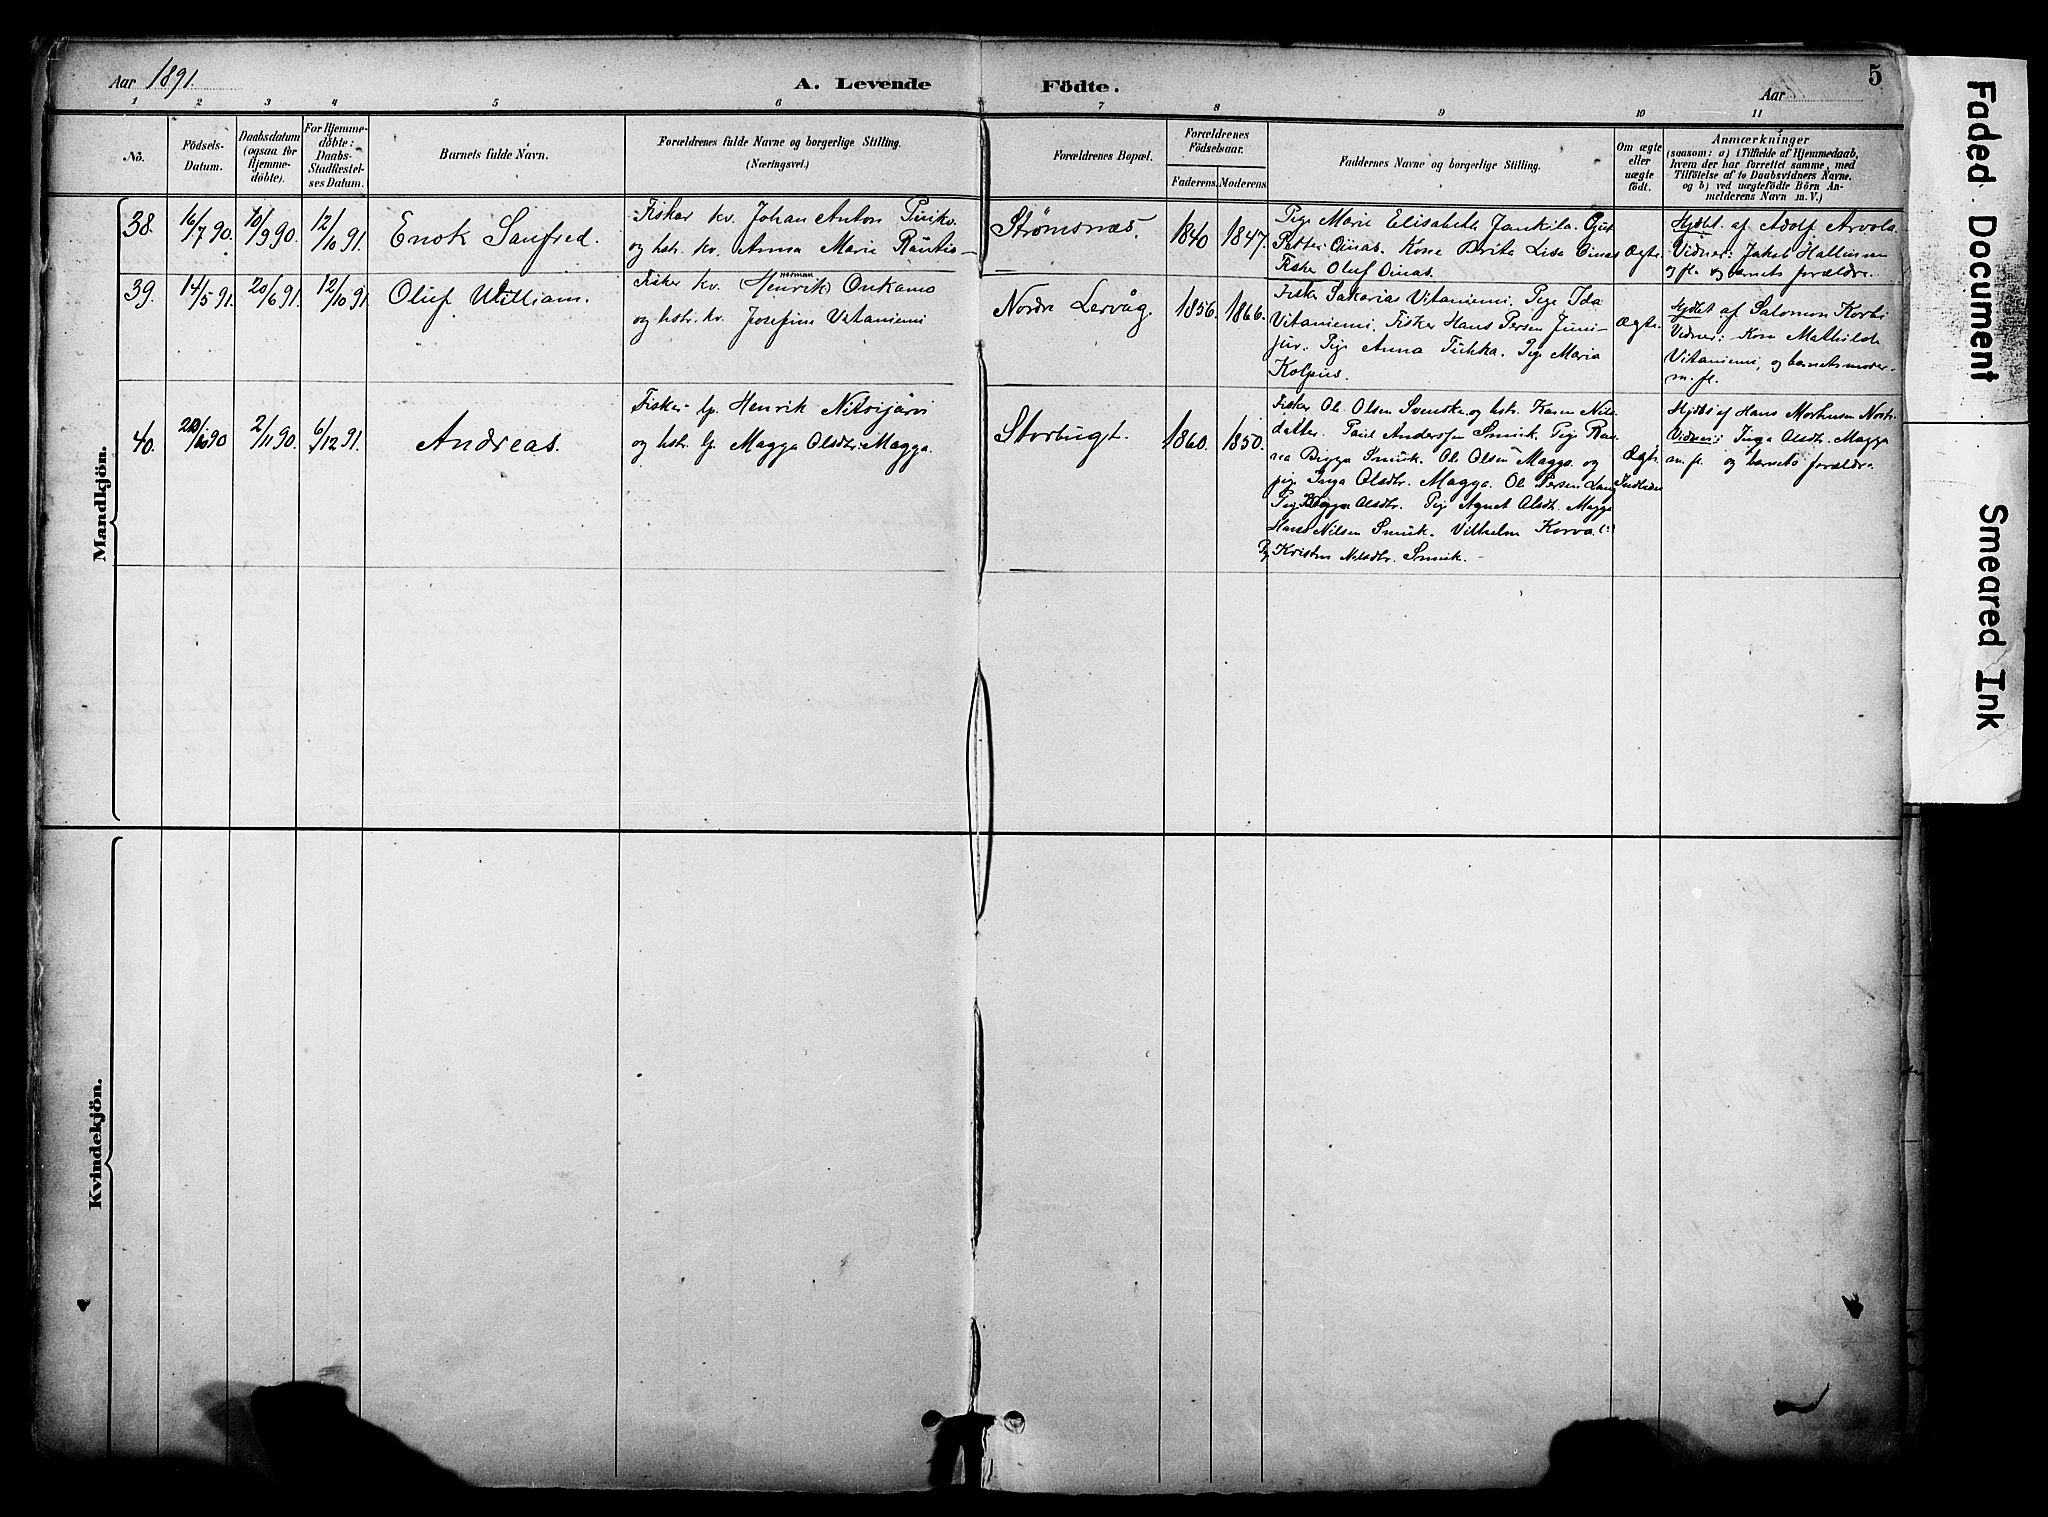 Aar 1891.
A. Levende Födte.
Aar
5
1 2 3 4 5 6 7 8 9 10 11
No.
Födsels-
Datum.
Daabsdatum
(ogsaa for
Hjemme-
döbte).
For Hjemme-
döbte:
Daabs-
Stadfæstel-
ses Datum.
Barnets fulde Navn.
Forældrenes fulde Navne og borgerlige Stilling.
(Næringsvei.)
Forældrenes Bopæl.
Forældrenes
Födselsaar.
Faderens. Moderens.
Faddernes Navne og borgerlige Stilling.
Om ægte
eller
uægte
födt.
Anmærkninger
(saasom: a) i Tilfælde af Hjemmedaab,
hvem der har forrettet samme, med
Tilföielse af to Daabsvidners Navne,
og b) ved uægtefödte Börn An-
melderens Navn m. V.)
Mandkjön.
38. 16/7 90. 10/9 90. 12/10 91. Enok Sanfred.
Fisker kv. Johan Anton
og hstr. kv. Anna Marie Rautio
Strømsnæs. 1840 1847.
Pige Marie Elisabeth Jankila.
Petter Oinas. Kone Brita Lisa Oinas
Fisker Oluf Oinas.
Ægte.
Hjdbt. af Adolf Arvola
Vidner: Jakob
og barnets forældre.
39. 14/5 91. 20/6 91. 12/10 91. Oluf William.
Fisker kv. (Henrik) Herman Onkamo
og hstr. kv. Josefine Vitaniemi
Nordre Lervåg. 1856. 1866.
Fisker Sakarias Vitaniemi. Pige Ida
Vitaniemi. Fisker Hans Persen Juni-
jur. Pige Anna Tuhka. Pige Maria
Kolpus.
Ægte.
Hjdbt af Salomon
Vidner: Kone Mathilde
Vitaniemi, og barnets moder
m. fl.
40. 2/11 90. 6/12 91. Andreas.
Fisker lp. Henrik Nitsijärvi
og hstr. lp. Magga Olsdtr. Magga.
Storbugt. 1860. 1850.
Fisker Ole Olsen Svenske og hstr. Karen Nils-
datter. Paul Andersen Smuk. Pige
Bigga Smuk. Ole Olsen Magga og
pige Inga Olsdtr. Magga. Ole Persen
Pige Olsdtr. Pige Agnet Olsdtr. Magga
Hans Nilsen Smuk. Vilhelm Korva
Pige Kristen Nilsdtr. Smuk.
Ægte.
Hjdbt af Hans Mortensen
Vidner: Inga Olsdtr. Magga
m. fl. og barnets forældre.
Kvindekjön.
Faded Document
Smeared Ink